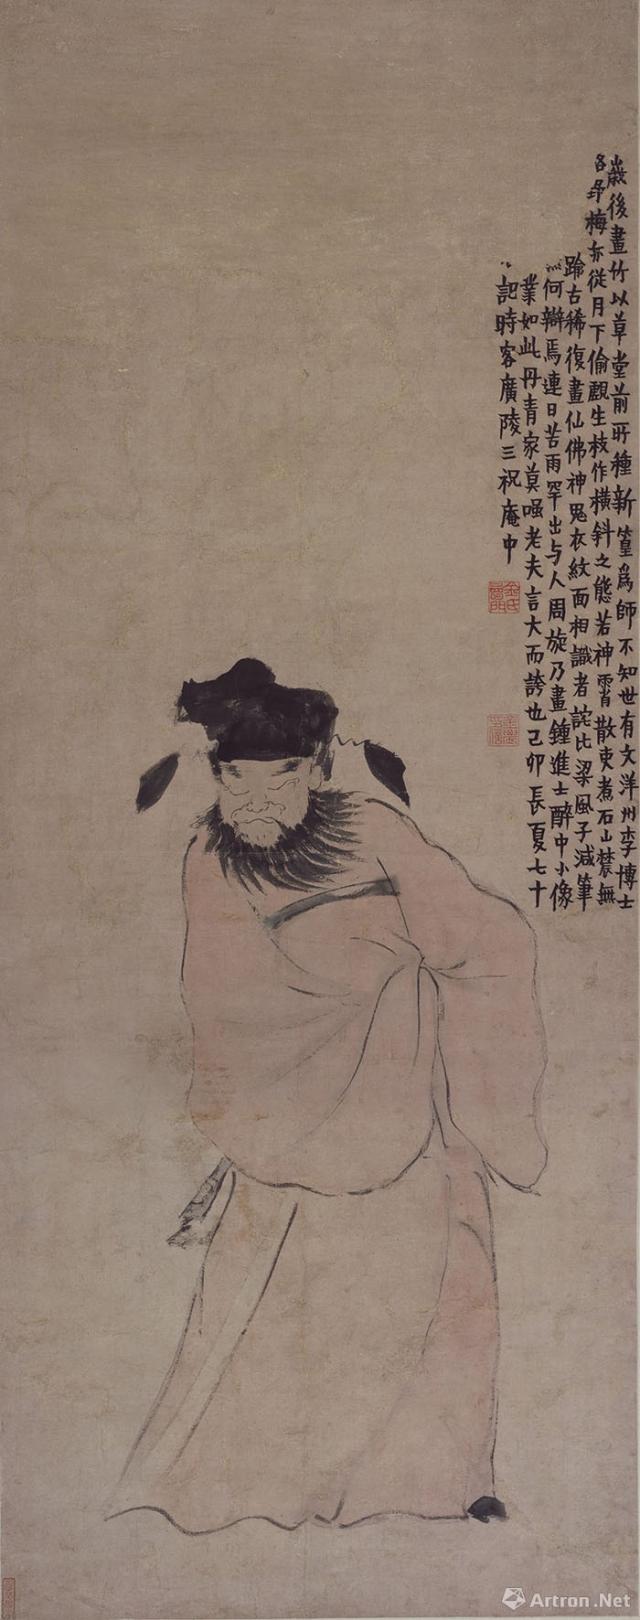 歲後畫竹以草堂前所種新篁爲師不知世有文洋州李博士
名㝷梅亦從月下偷覷生枝作橫斜之態若神霄散吏煮石山農無
踰古稀復畫仙佛神鬼衣紋面相識者詫比梁風子減筆
何辯焉連日苦雨罕出与人周旋乃畫鍾進士醉中小像
業如此丹青家莫嗤老夫言大而誇也己卯長夏七十
記時客廣陵三祝庵中
金氏壽門
Artron.Net